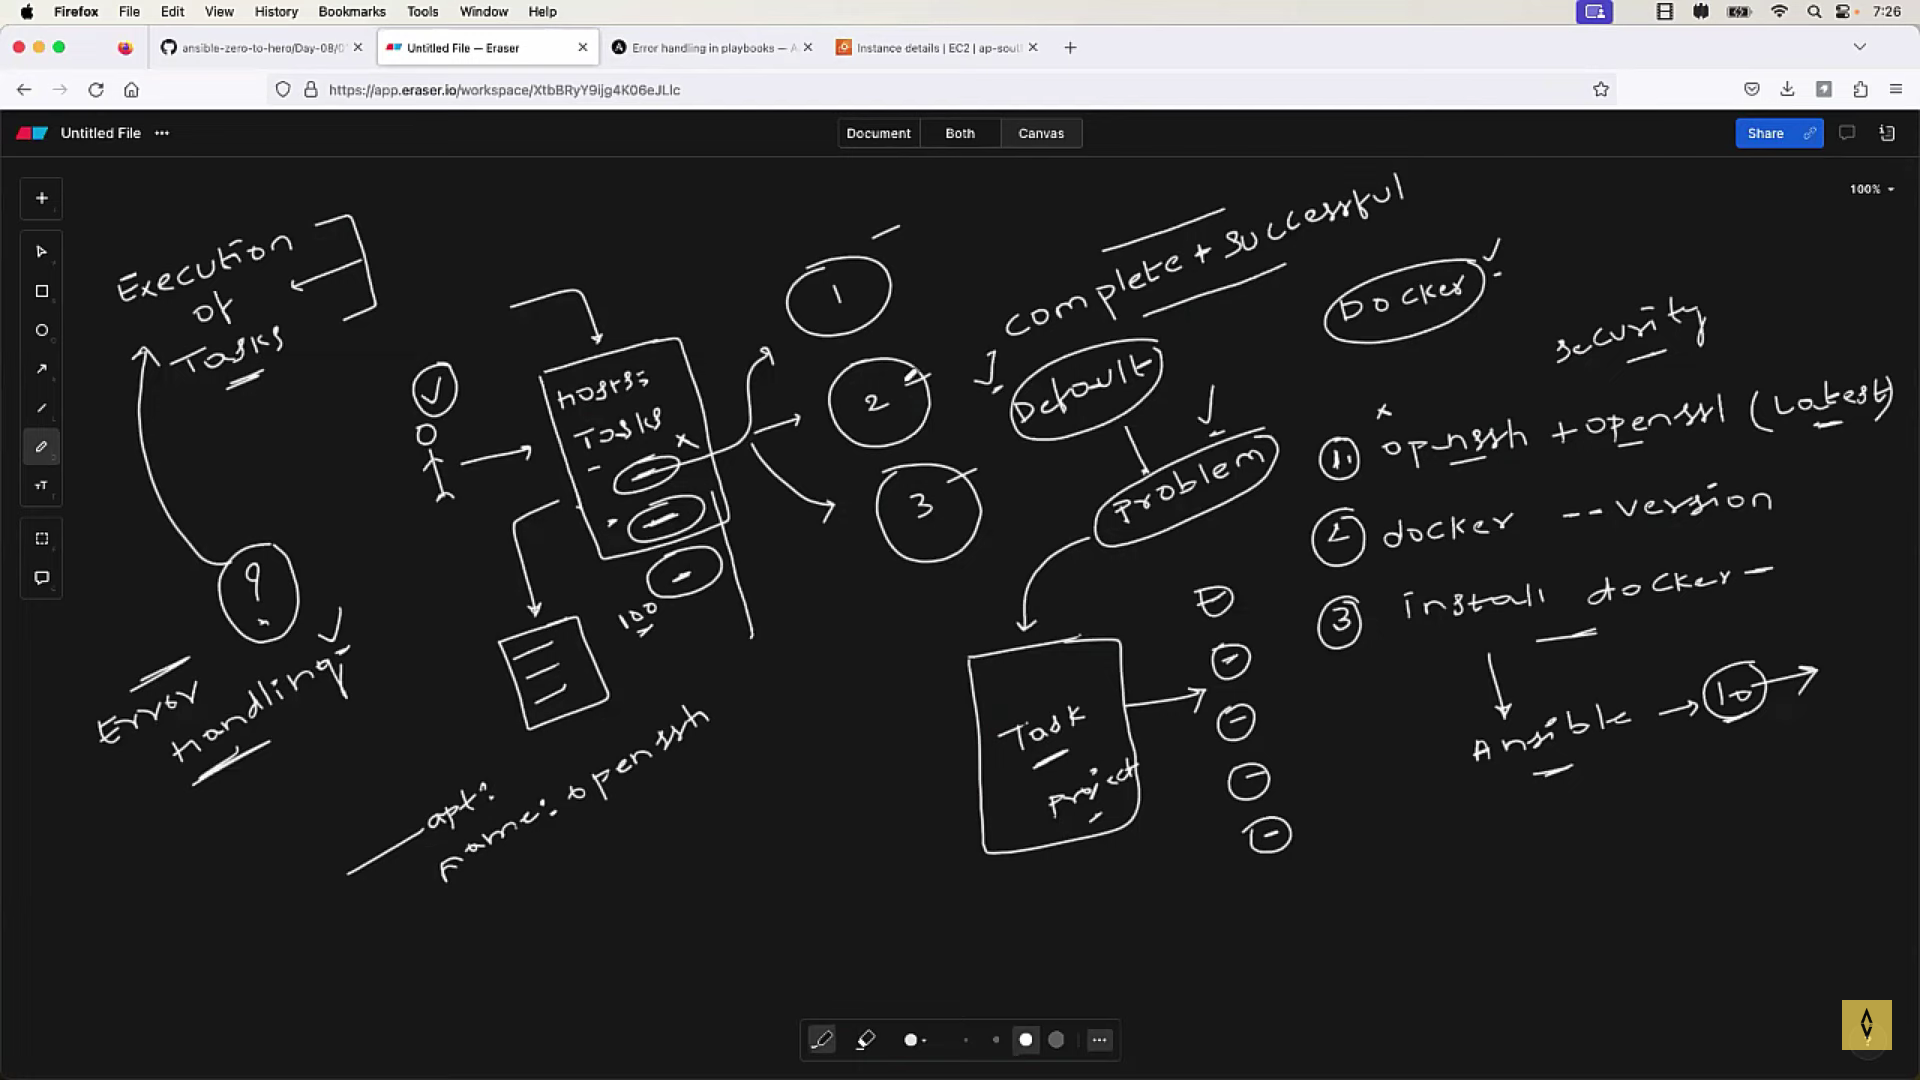 Firefox File Edit View History Bookmarks Tools Window Help 7:26
ansible-zero-to-hero/Day-08/0
Untitled File — Eraser
Error handling in playbooks — A
Instance details | EC2 | ap-sout
https://app.eraser.io/workspace/XtbBRyY9ijg4K06eJLlc
Untitled File
Document Both Canvas
Share
100%
Execution
of
Tasks
?
Error
handling
hosts:
Tasks
100
apt:
name: openssh
1
2
3
complete + successful
Default
Problem
Task
Project
Docker
security
1. openssh + openssl (Latest)
2 docker --version
3 install docker -
Ansible → 10 →